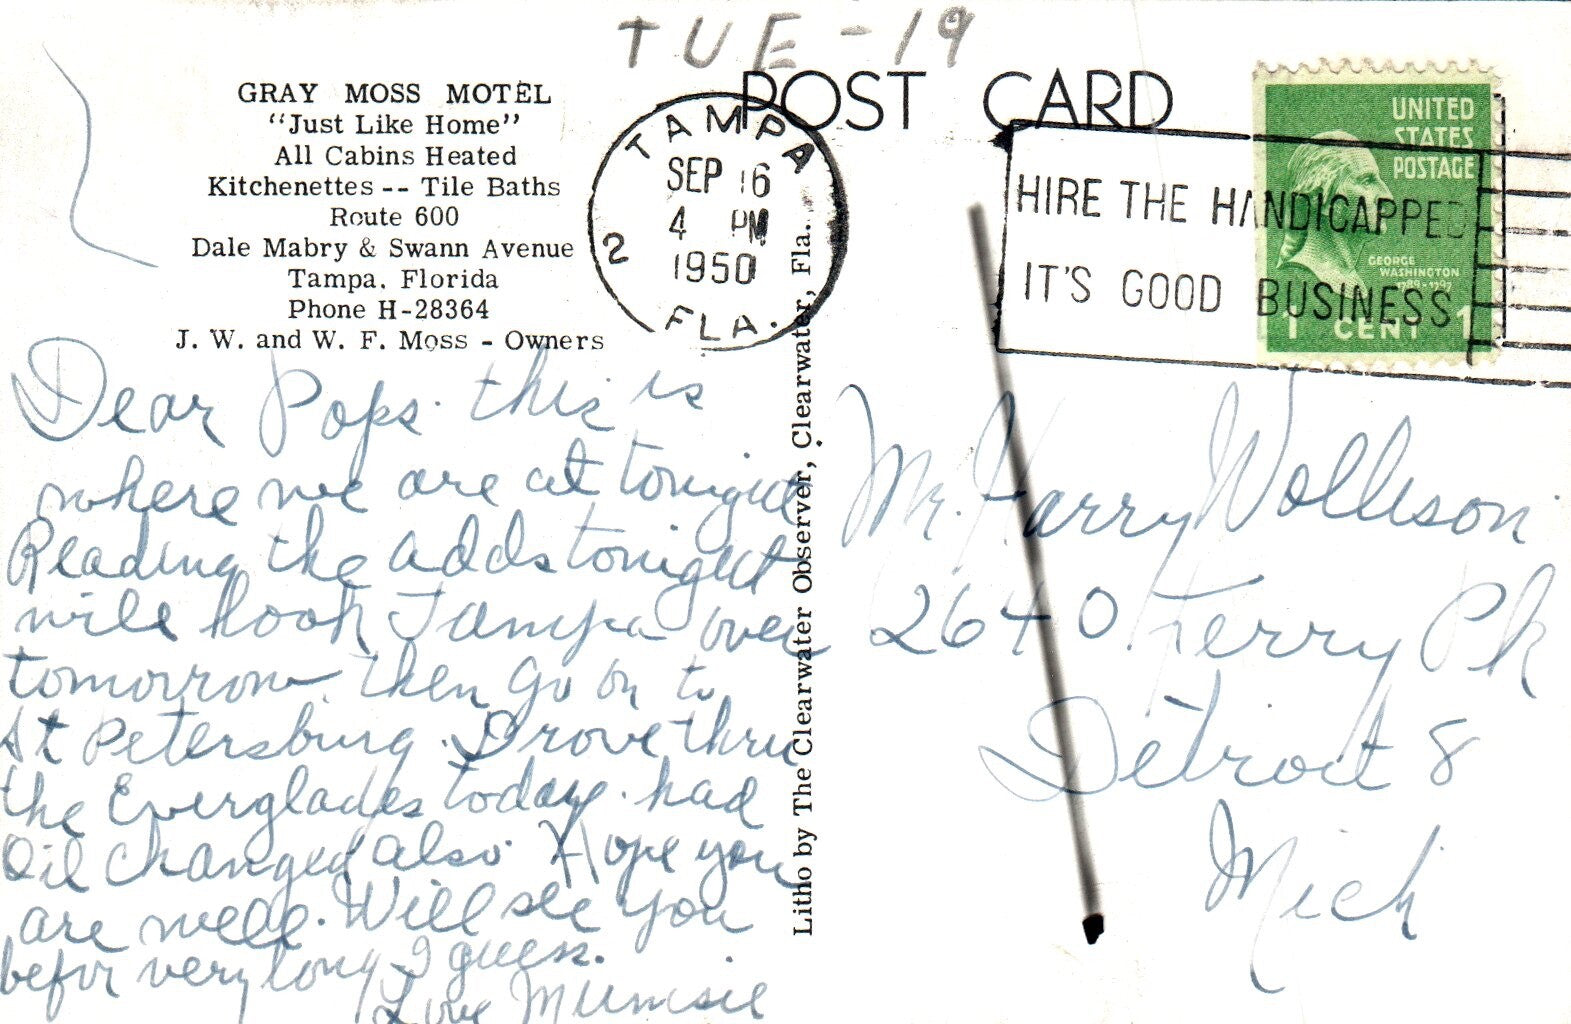 TUE - 19
GRAY MOSS MOTEL
"Just Like Home"
All Cabins Heated
Kitchenettes -- Tile Baths
Route 600
Dale Mabry & Swann Avenue
Tampa, Florida
Phone H-28364
J. W. and W. F. Moss - Owners
POST CARD
TAMPA
SEP 16
4 PM
1950
2
FLA.
HIRE THE HANDICAPPED
IT'S GOOD BUSINESS
UNITED
STATES
POSTAGE
GEORGE
WASHINGTON
1789-1797
1 CENT 1
Dear Pops. this is
where we are at tonight
Reading the adds tonight
will look Tampa over
tomorrow. then go on to
St Petersburg. Drove thru
the Everglades today. had
Oil changed also. Hope you
are well. Will see you
befor very long I guess.
Love Mumsie
Litho by The Clearwater Observer, Clearwater, Fla.
Mr. Harry Wollison
2640 Ferry Pk
Detroit 8
Mich